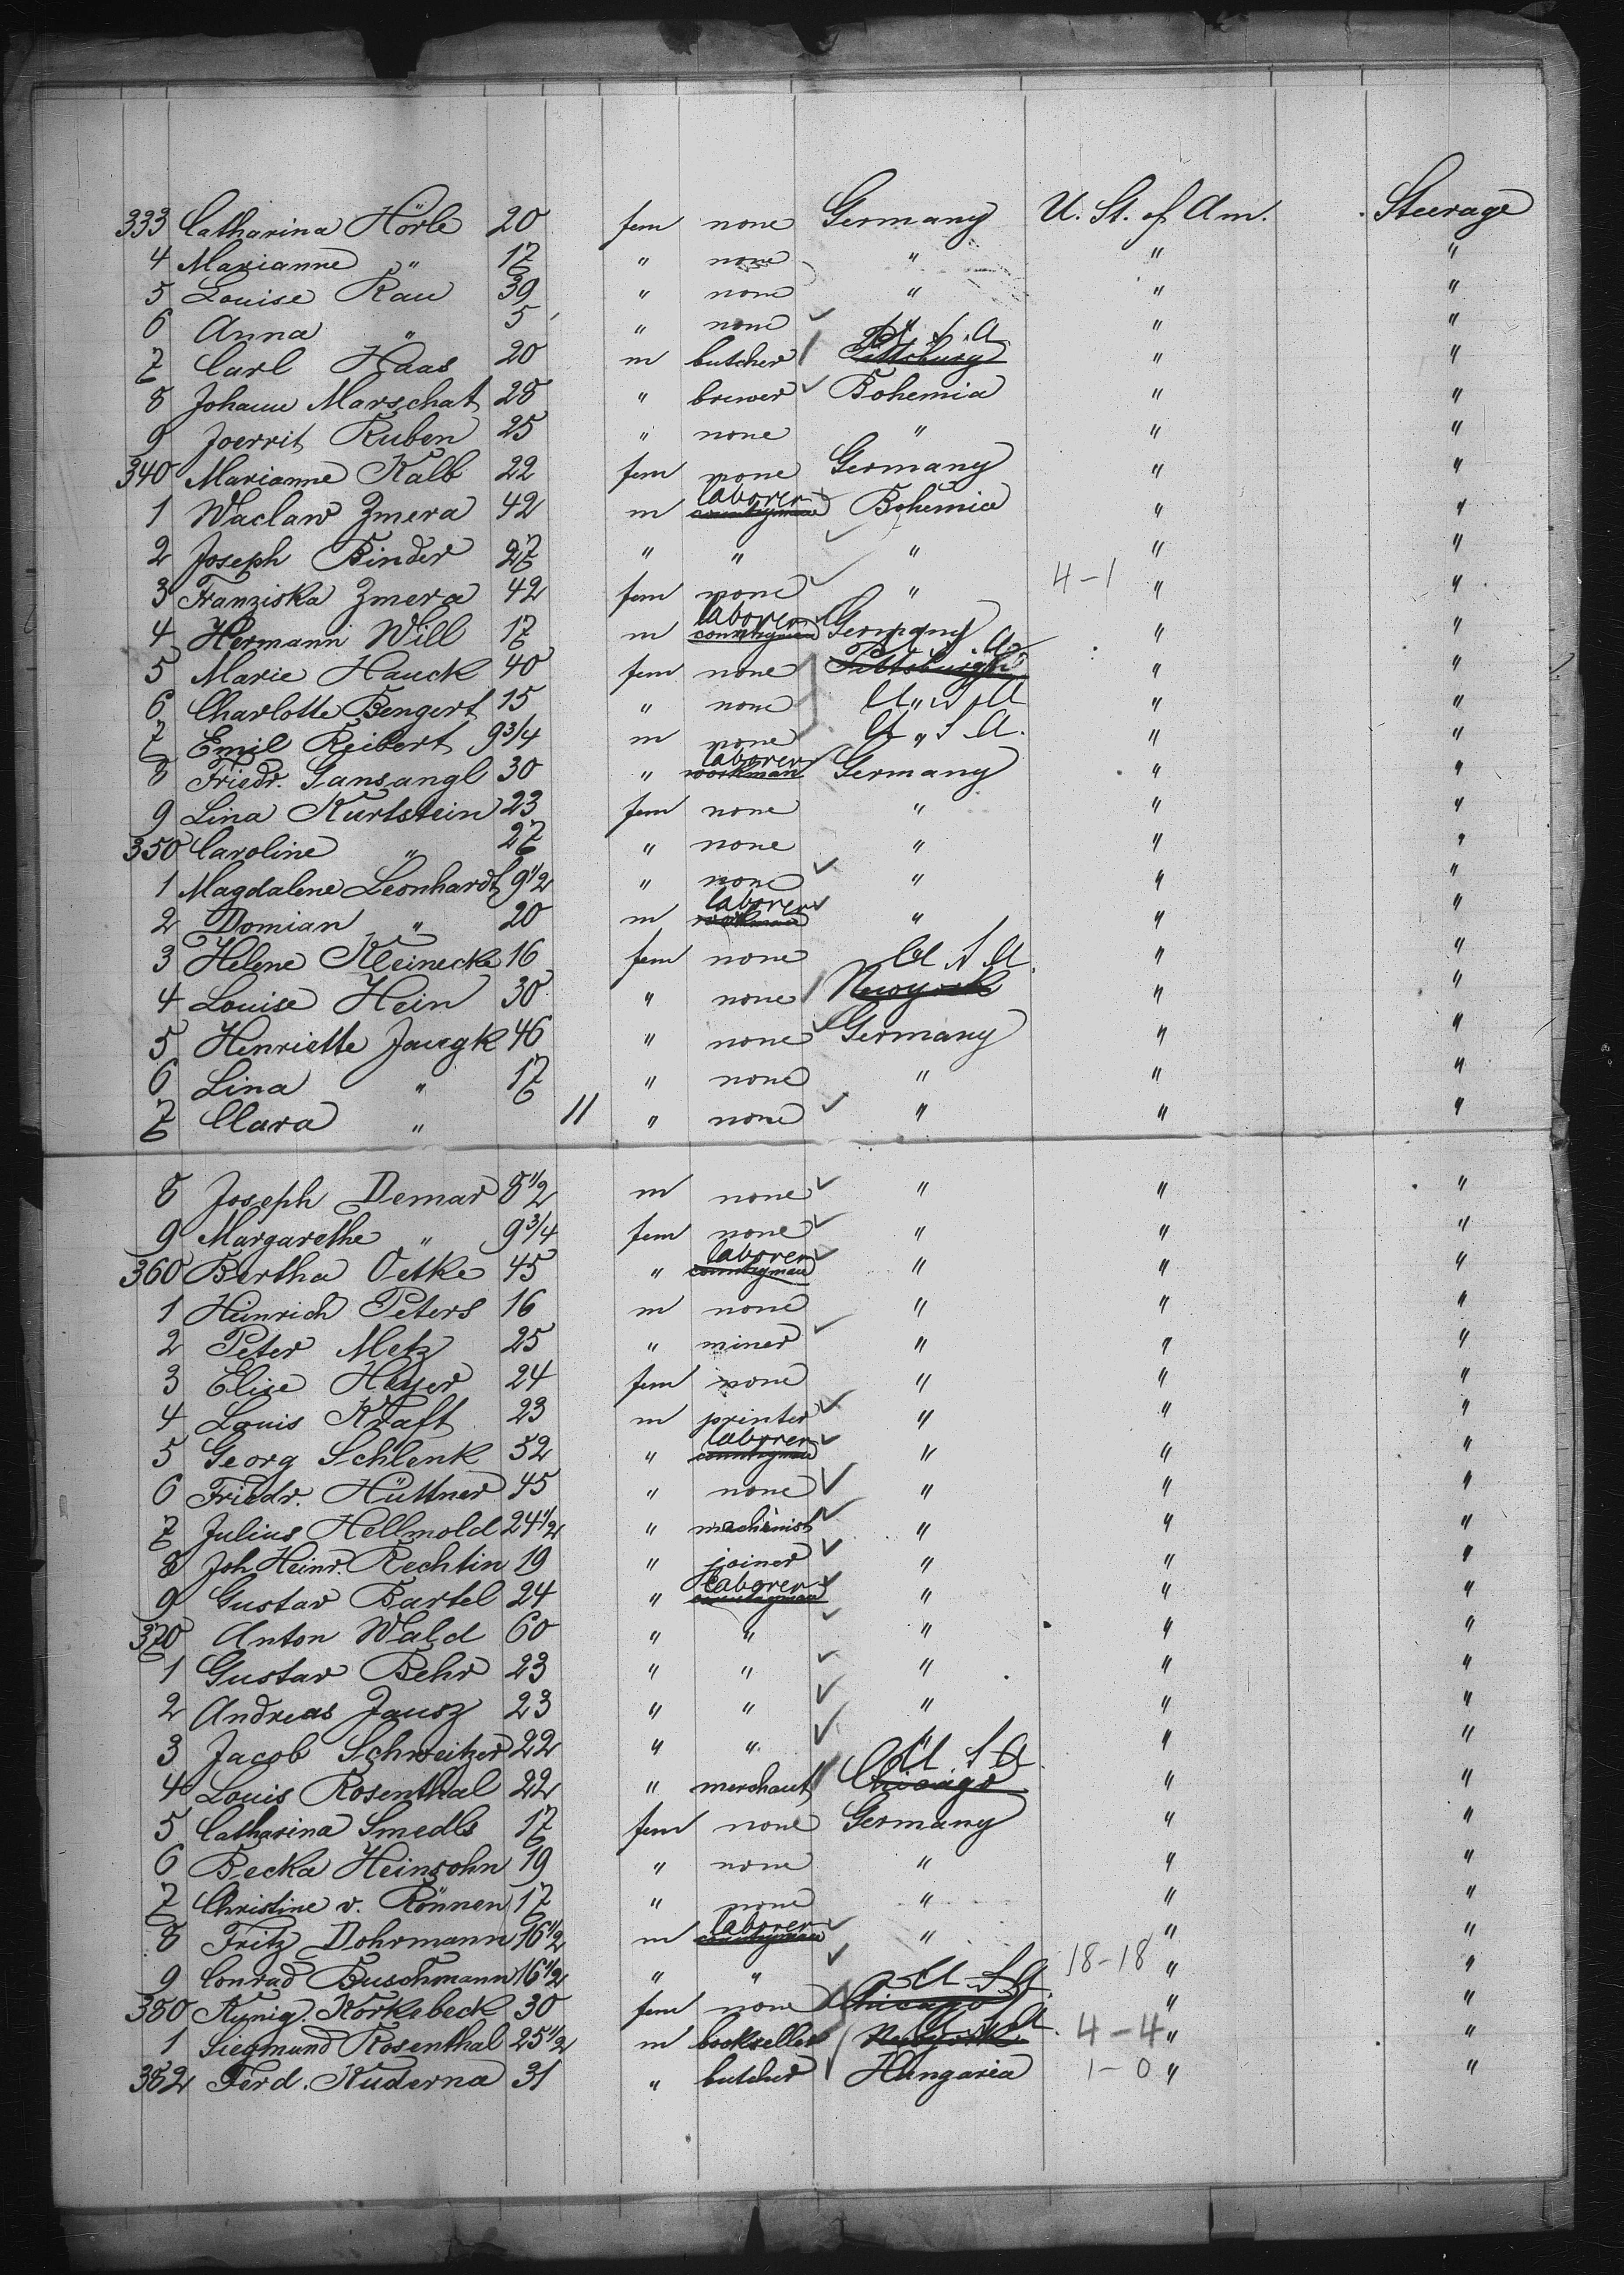 333 Catharina Hörle 20 fem none Germany U. St. of Am. Steerage
4 Marianne " 17 " none " " "
5 Louise Rau 39 " none " " "
6 Anna " 5 " none " " "
7 Carl Haas 20 m butcher Pittsburg U. S. A. " "
8 Johann Marschat 28 " brewer Bohemia " "
9 Joerrit Ruben 25 " none " " "
340 Marianne Kalb 22 fem none Germany " "
1 Waclaw Zmera 42 m countryman laborer Bohemia " "
2 Joseph Binder 27 " " " " "
3 Franziska Zmera 42 fem none " 4-1 " "
4 Hermann Will 17 m countryman laborer Germany " "
5 Marie Hauck 40 fem none Pittsburgh U. S. A. " "
6 Charlotte Bengert 15 " none " U S A " "
7 Emil Reibert 9 3/4 m none " U S A. " "
8 Friedr. Gansangl 30 " workman laborer Germany " "
9 Lina Kurtstein 23 fem none " " "
350 Caroline " 27 " none " " "
1 Magdalene Leonhardt 9 1/2 " none " " "
2 Domian " 20 m workman laborer " " "
3 Helene Kleinecke 16 fem none " "
4 Louise Hein 30 " none Newyork U S A. " "
5 Henriette Jaugk 46 " none Germany " "
6 Lina " 17 " none " " "
7 Clara " 11 " none " " "
8 Joseph Demar 8 1/2 m none " " "
9 Margarethe " 9 3/4 fem none " " "
360 Bertha Oetke 45 " countryman laborer " " "
1 Heinrich Peters 16 m none " " "
2 Peter Metz 25 " miner " " "
3 Elise Heyer 24 fem none " " "
4 Louis Kraft 23 m printer " " "
5 Georg Schlenk 52 " countryman laborer " " "
6 Friedr. Hüttner 45 " none " " "
7 Julius Hellmold 24 1/2 " machinist " " "
8 Joh. Heinr. Rechtin 19 " joiner " " "
9 Gustav Bartel 24 " countryman laborer " " "
370 Anton Wald 60 " " " " "
1 Gustav Behr 23 " " " " "
2 Andreas Jausz 23 " " " " "
3 Jacob Schweitzer 22 " " " " "
4 Louis Rosenthal 22 " merchant Chicago U S A " "
5 Catharina Smedls 17 fem none Germany " "
6 Becka Heinsohn 19 " none " " "
7 Christine v. Rönnen 17 " none " " "
8 Fritz Dohrmann 16 1/2 m countryman laborer " " "
9 Conrad Buschmann 16 1/2 " " 18-18 " "
380 Kunig. Körkebeck 30 fem none Chicago U S A " "
1 Siegmund Rosenthal 25 1/2 m bookseller Newyork U S A. 4-4 " "
382 Ferd. Kuderna 31 " butcher Hungaria 1-0 " "